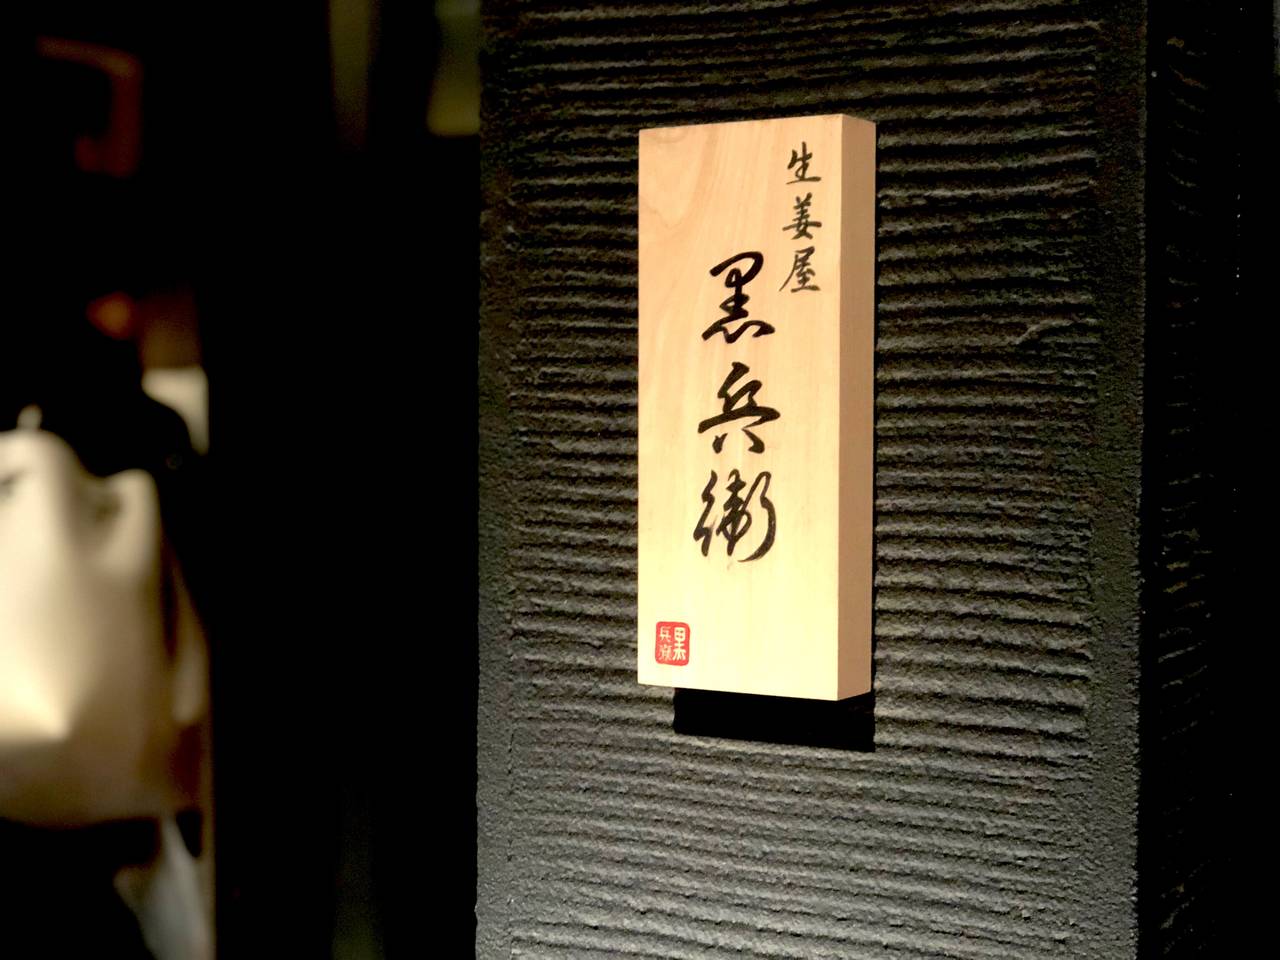 生姜屋
黒兵衛
黒兵衛